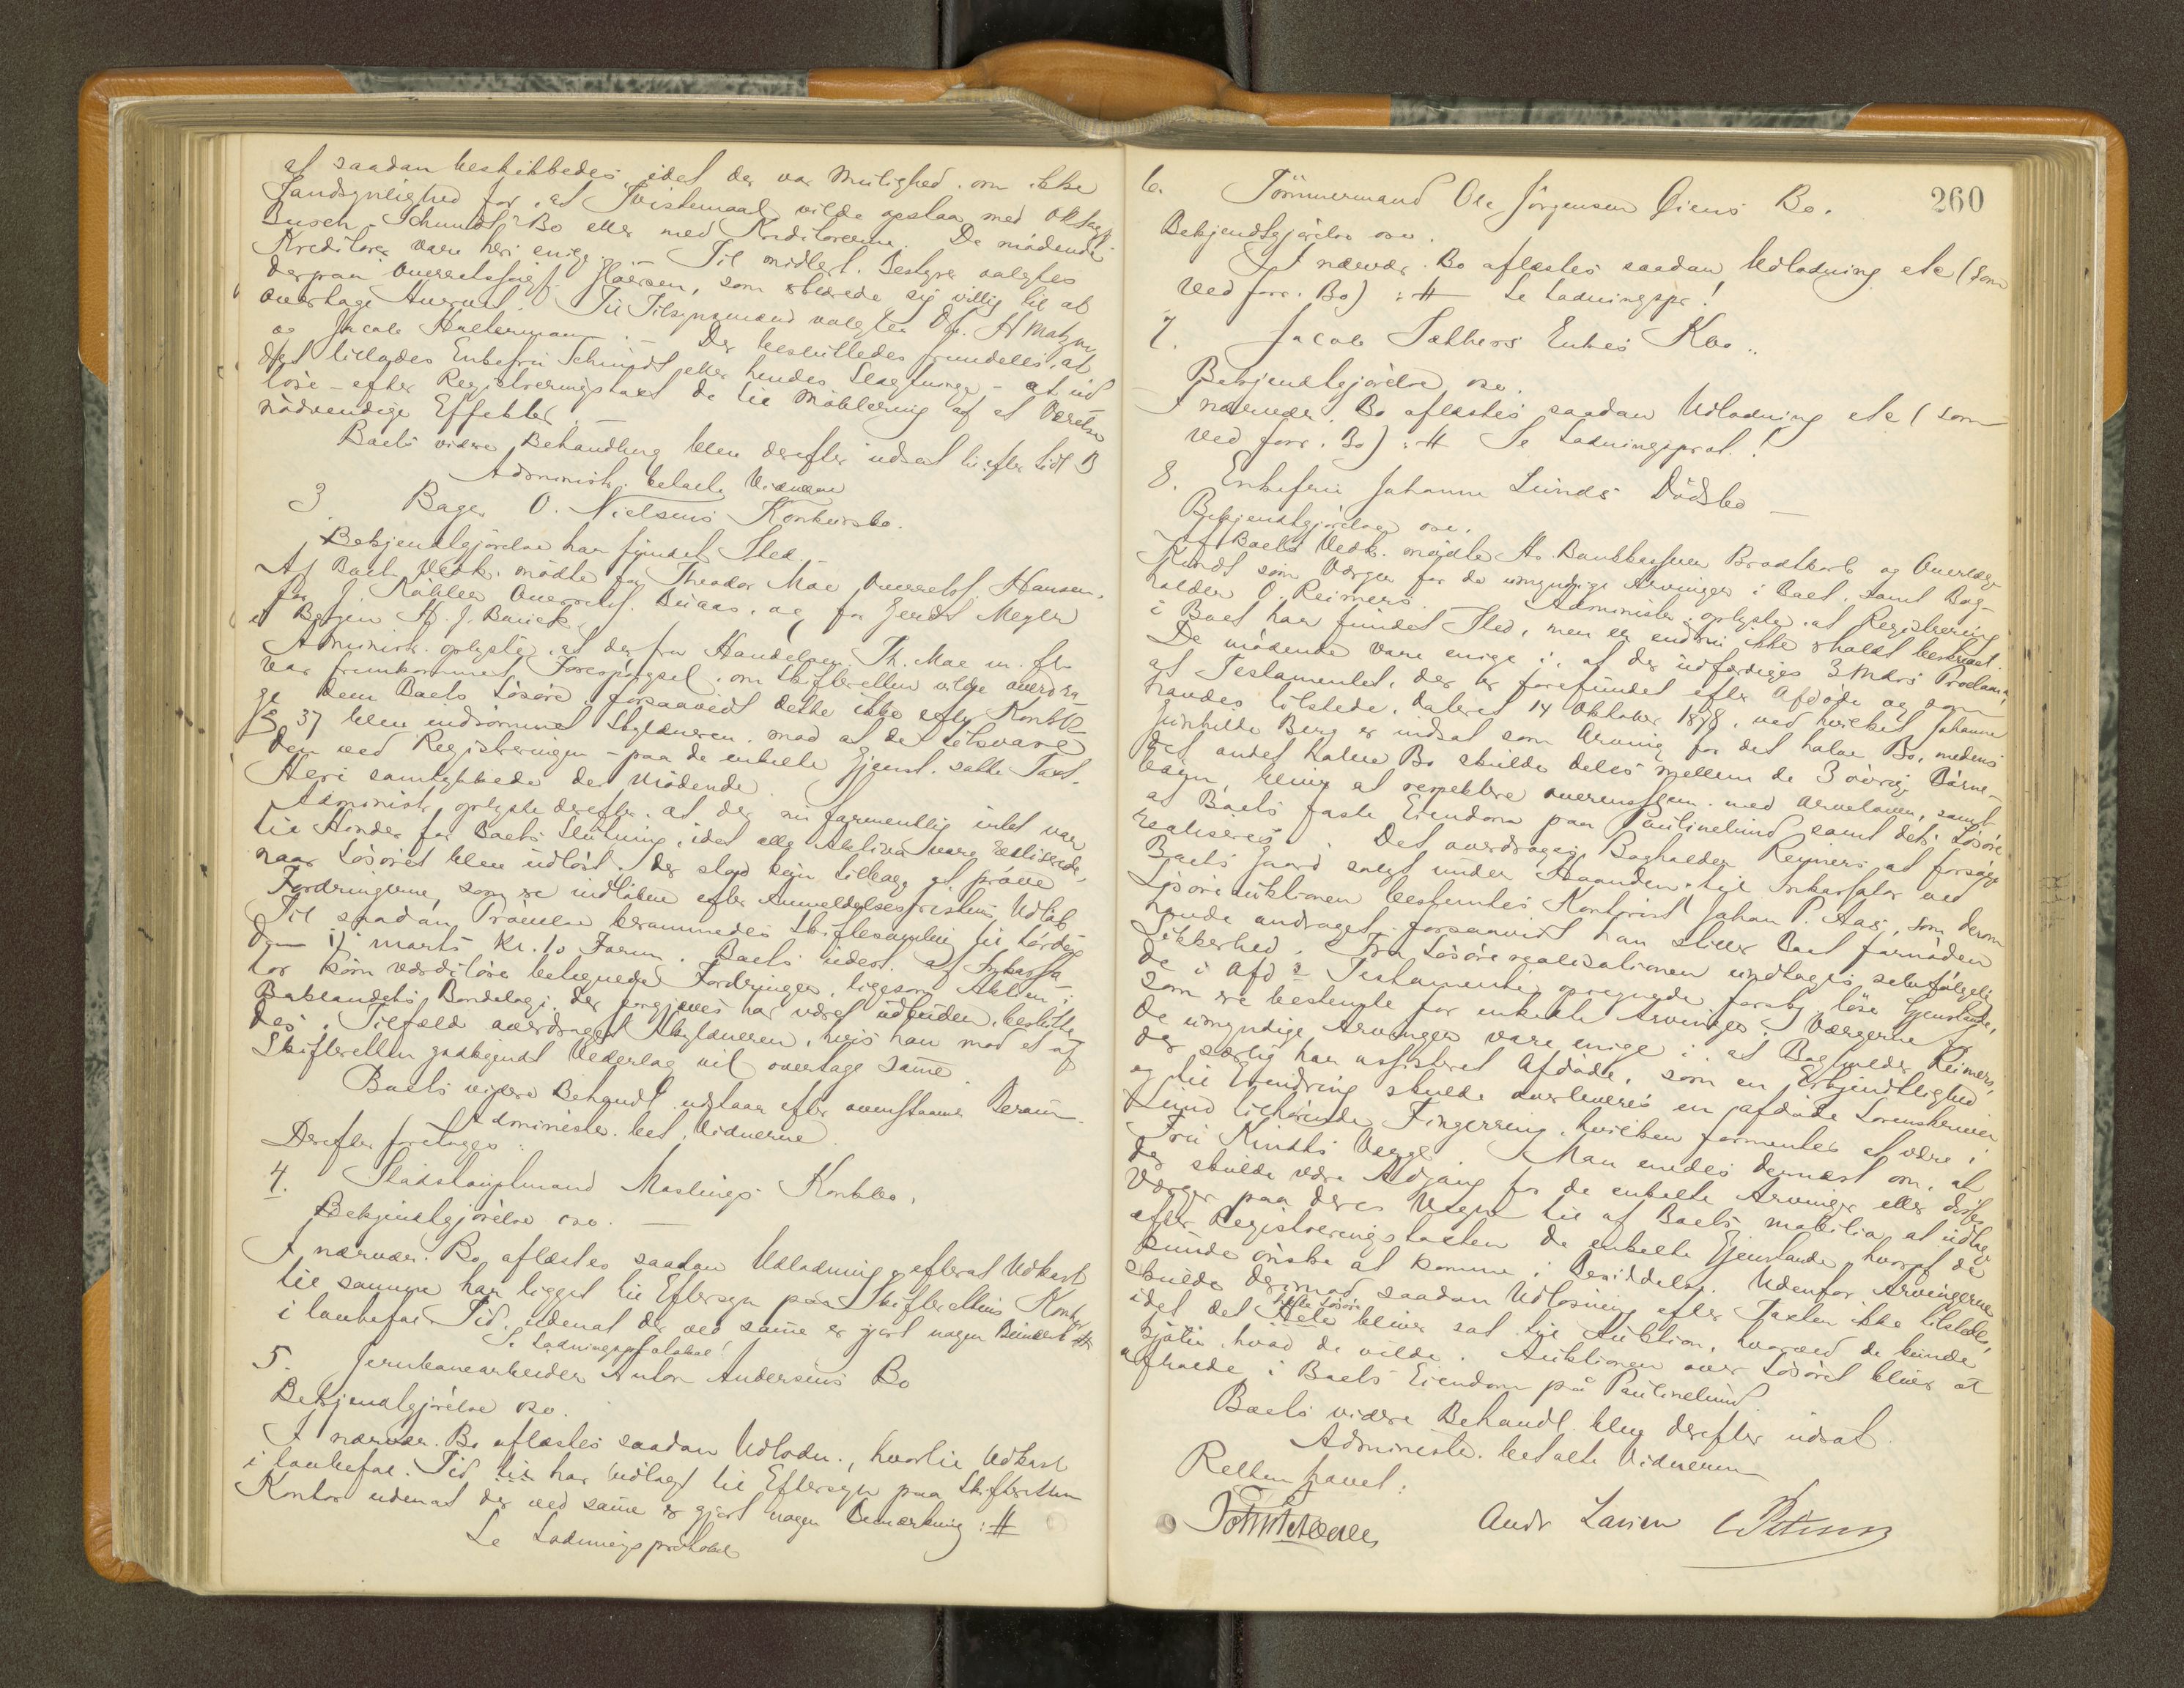 at saadan beskikkedes, idet der var Mulighed, om ikke
Sandsynlighed for, at Tvistemaal vilde opstaa med O.R.Sagf.
Busch-Schmidts Bo eller med Kreditorerne. De mödende
Kreditorer vare heri enige. Til midlert. Bestyrer valgtes
derpaa Overretssagf. , som erklærede sig villig til at
overtage Hvervet. Til Tilsynsmænd valgtes Hr. H Matzon
og Jacob Haltermann. — Der besluttedes fremdeles, at
det tillodes Enkefru Schmidt eller hendes Slægtninge - at ud
löse - efter Registreringstaxt de til Möblering af et Værelse
nödvendige Effekter. —
Boets videre Behandling blev derefter udsat til efter Lidt B
Administr. betalte Vidnerne
3 Bager O. Nielsens Konkursbo.
Bekjendtgjörelse har fundet Sted.
Af Boets Vedk. mödte for Theodor Moe Overretsf. Hansen,
for J. Köhler Overretsf. Buaas, og for Gerdt Meyer
i Bergen H. J. Barick.
Administr. oplyste, at der fra Handelsm. Th. Moe m. fl.
var fremkommet Forespörgsel, om Skifteretten vilde overdra-
ge dem Boets Lösöre forsaavidt dette ikke efter Konkl.
§ 37 blev indrömmet Skyldneren, mod at de tilsvare
den ved Registreringen - paa de enkelte Gjenst. satte Taxt.
Heri samtykkede de Mödende.
Administr. oplyste derefter, at der nu formentlig intet var
til Hinder for Boets Slutning, idet alle Aktiva vare realiserede,
naar Lösöret blev udlöst. Der stod kun tilbage at pröve
Fordringerne, som ere indlöbne efter Anmeldelsesfristens Udlöb
Til saadan Prövelse berammedes Skiftesamling til Lördag
den 17 marts Kl. 10 Form. Boets udest. af Inkassa-
tor som værdilöse betegnede Fordringer, ligesom Aktien i
Baklandets Bondelag, der forgjæves har været udbuden, beslutte-
des i Tilfælde overdraget Skyldneren, hvis han mod et af
Skifteretten godkjendt Vederlag vil overtage samme
Boets videre Behandl. udstaar efter ovenstaaende Beram.
Administr. bet. Vidnerne.
Derefter foretoges:
4. Stadshauptmand Mostings Konkbo.
Bekjendtgjörelse osv. —
I nærvær. Bo aflæstes saadan Udlodning, efterat Udkast
til samme har ligget til Eftersyn paa Skifterettens Kontor
i lovbefal. Tid, udenat der ved samme er gjort nogen Bemærk. #
Se Lodningsprotokol!
5. Jernbanearbeider Anton Andersens Bo
Bekjendtgjörelse osv.
I nærvær. Bo aflæstes saadan Udlodn., hvortil Udkast
i lovbefal. Tid har udlagt til Eftersyn paa Skifterettens
Kontor udenat der ved samme er gjort nogen Bemærkning: #
Se Lodningsprotokol
260
6. Tömmermand Ole Jörgensen Öiens Bo.
Bekjendtgjörelse osv.
I nærvær. Bo aflæstes saadan Udlodning etc (som
ved forr. Bo) : # Se Lodningspr!
7. Jacob Sæthers Enkes Kbo.
Bekjendtgjörelse osv.
I nærvær. Bo aflæstes saadan Udlodning etc (som
ved forr. Bo) : # Se Lodningsprot.!
8. Enkefru Johanne Lunds Dödsbo —
Bekjendtgjörelse osv.
Af Boets Vedk. mödte Hr. Bankkasserer Bradtkorb og Overlæge
Kindt som Værger for de umyndige Arvinger i Boet, samt Bog-
holder O. Reimers. Administr. oplyste, at Registrering
i Boet har fundet Sted, men er endnu ikke tilendebragt.
De mödende vare enige i, at der udfærdiges 3 Mdrs Proclama,
at Testamentet, der er forefundet efter Afdöde og som
havdes tilstede, dateret 14 Oktober 1878, ved hvilket Johanne
Gunhilde Berg er indsat som Arving for det halve Bo, medens
det andet halve Bo skulde deles mellem de 3 övrige Börne-
börn bliver at respektere overensstem. med Arveloven, samt
at Boets faste Eiendom paa Paulinelund samt dets Lösöre
realiseres. Det overdroges Bogholder Reimers at forsöge
Boets Gaard solgt under Haanden. Til Inkassator ved
Lösöreauktionen bestemtes Kontorist Johan P. Aas, som derom
havde andraget, forsaavidt han stiller Boet fornöden
Sikkerhed. Fra Lösörerealisationen undtages selvfölgelig
de i Afd.s Testamente opregnede forskj. löse Gjenstande,
som ere bestemte for enkelte Arvinger. Værgerne for
de umyndige Arvinger vare enige i, at Bogholder Reimers,
der særlig har assisteret Afdöde, som en Erkjendtlighed
og til Erindring skulde overleveres en afdöde Lorentz
Lund tilhörende Fingerring, hvilken formentes at være i
Fru Kindts Værge. Man enedes dernæst om, at
der skulde være Adgang for de enkelte Arvinger eller disses
Værger paa deres Vegne til af Boets mobilia at udtage
efter Registreringstaxten de enkelte Gjenstande, hvoraf de
kunde önske at komme i Besiddelse. Udenfor Arvingerne
skulde derimod saadan Udlösning efter Taxten ikke tilstedes,
idet det Hele Lösöre bliver sat til Auktion, hvorved de kunde
kjöbe, hvad de vilde. Auktionen over Lösöret bliver at
afholde i Boets Eiendom på Paulinelund.
Boets videre Behandl. blev derefter udsat.
Administr. betalte Vidnerne
Retten hævet:
Andr Larsen